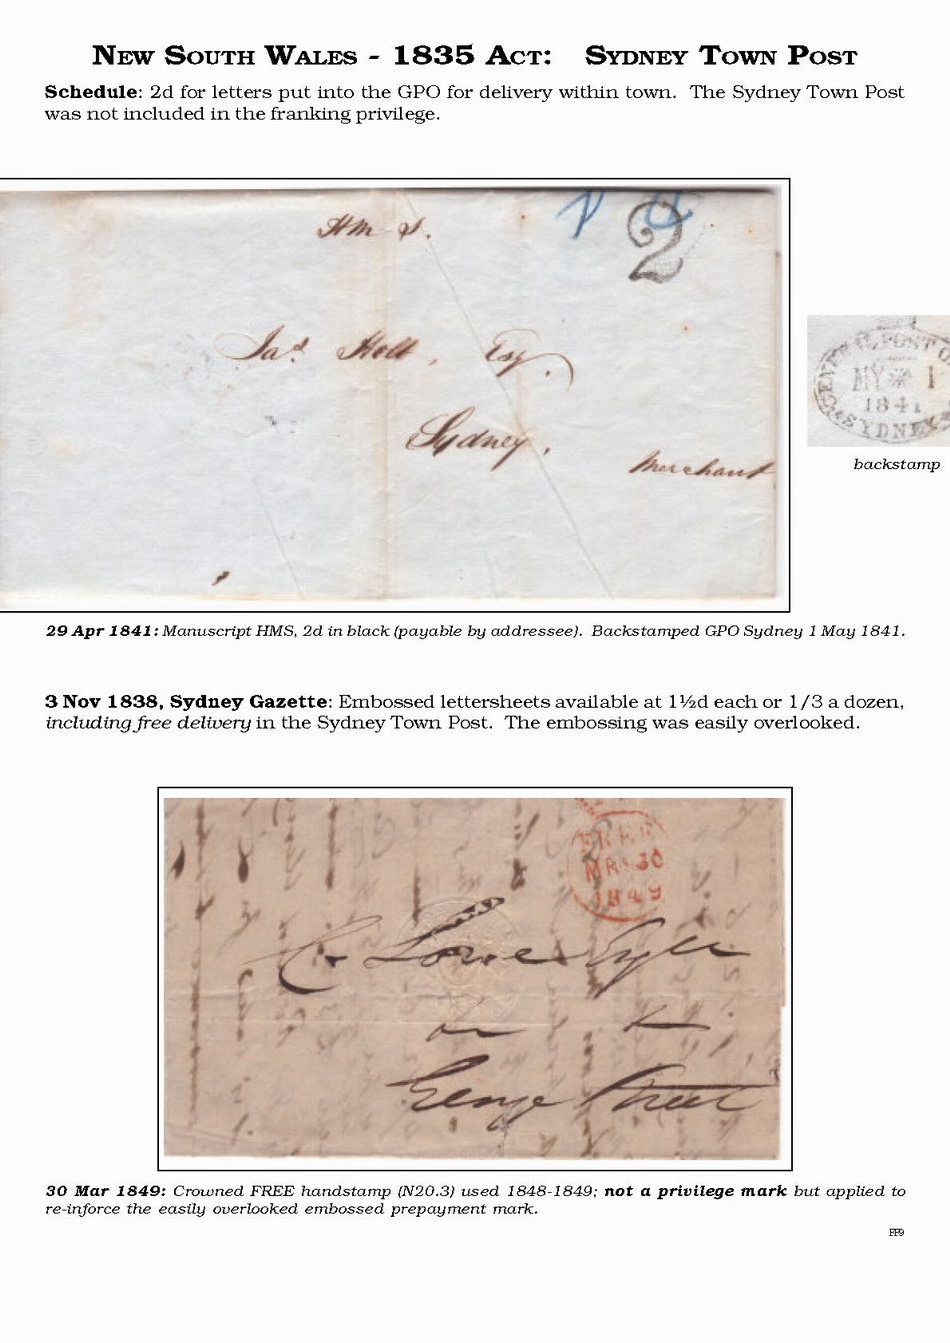 New South Wales - 1835 Act: Sydney Town Post
Schedule: 2d for letters put into the GPO for delivery within town. The Sydney Town Post
was not included in the franking privilege.
HM S.
2
Jas. Holt, Esq.
Sydney,
Merchant
MY 1
1841
SYDNEY
backstamp
29 Apr 1841: Manuscript HMS, 2d in black (payable by addressee). Backstamped GPO Sydney 1 May 1841.
3 Nov 1838, Sydney Gazette: Embossed lettersheets available at 1½d each or 1/3 a dozen,
including free delivery in the Sydney Town Post. The embossing was easily overlooked.
FREE
MR 30
1849
Lowe
George Street
30 Mar 1849: Crowned FREE handstamp (N20.3) used 1848-1849; not a privilege mark but applied to
re-inforce the easily overlooked embossed prepayment mark.
FF9